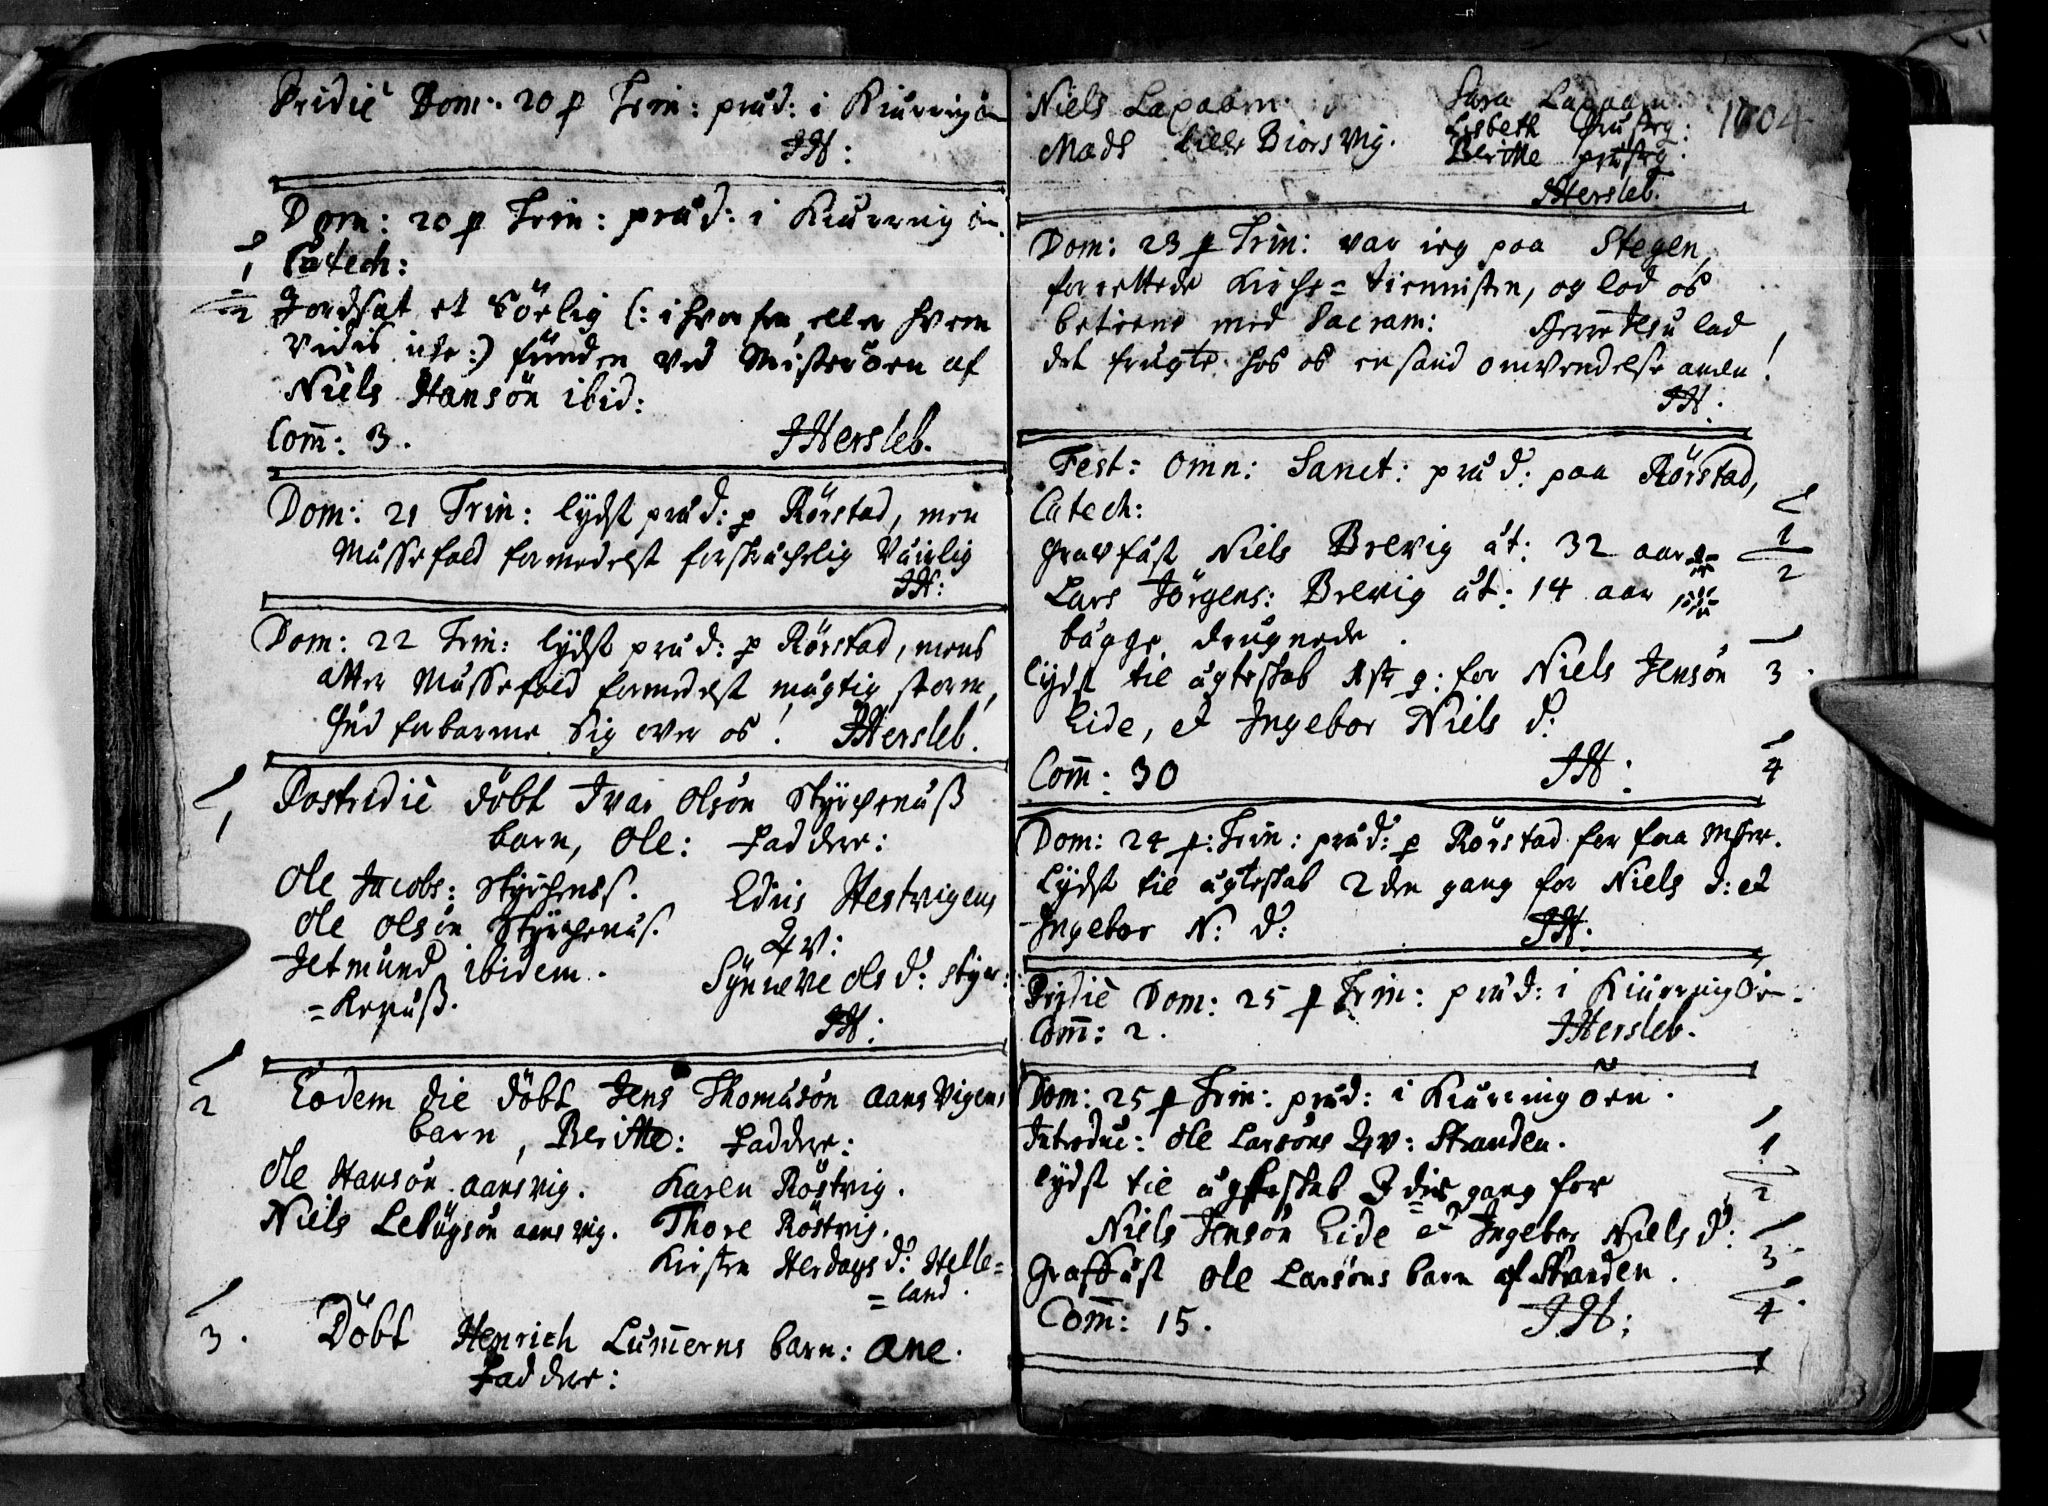 Pridiè Dom: 20 p Trin: præd: i Kiærringön
JH:
Dom: 20 p Trin: præd: i Kiærringön.
1 Catech:
2 Jordsat et Sörlig (: ihvorfra eller hvem
vides icke :) funden ved Misteröen af
Niels Hansön ibid:
Com̄: 3. JHersleb.
Dom: 21 Trin: lydst præd: p Rörstad, men
Messefald formedelst forskrechelig Vairlig
JH:
Dom: 22 Trin: lydst præd: p Rörstad, mens
atter Messefald formedelst mægtig storm,
Gud forbarme sig over os! JHersleb.
1 Postridiè döbt Ivar Olsön Styrchesnæß
barn, Ole: Faddere:
Ole Jacobs: Styrchesnes.
Ole Olsön Styrchesnæs.
Jetmund ibidem.
=kesnæß.
Edvis Hestvigens
Qv:
Synneve Ols d: Styr:
JH:
2 Eodem die döbt Jens Thomæsön Aansvigens
barn, Beritte: Faddere:
Ole Hansön Aansvig. Karen Röstvig.
Niels Ledugsön Aansvig. Thore Röstvig.
Kirsten Herdags d: Helle=
=land.
3. Döbt Henrich Lum̄erns barn: Ane.
Faddere:
Niels Laxaaen Sara Laxaaen 1704
Mads Lille Biorsvig. Lisbeth
Beritte
JHersleb.
Dom: 23 p Trin: var ieg paa Stegen,
forrettede Kirche=tiennisten, og lod os
betiene med Sacram: Herre Jesu lad
det frugte hos os en sand omvendelse amen!
JH:
Fest: Omn: Sanct: præd: paa Rörstad,
Catech: 1
Gravfæst Niels Brevig æt: 32 aar 2
Lars Jörgens: Brevig æt: 14 aar
begge drugnede.
lydst til ægteskab 1ste g: for Niels Jensön 3.
Eide, et Ingebor Niels d:
Com̄: 30 JH: 4
Dom: 24 p: Trin: præd: p Rörstad for faa Mser.
Lydst til ægteskab 2den gang for Niels J: et
Ingebor N: d: JH:
Pridiè Dom: 25 p Trin: præd: i Kiærringön.
Com̄: 2. JHersleb.
Dom: 25 p Trin: præd: i Kiærringöen.
Introduc: Ole Larsöns Qv: Stranden. 1
lydst til ægteskab 3die gang for 2
Niels Jensön Eide et Ingebor Niels d: 3.
Graffæst Ole Larsöns barn af Stranden.
Com̄: 15. JH: 4.